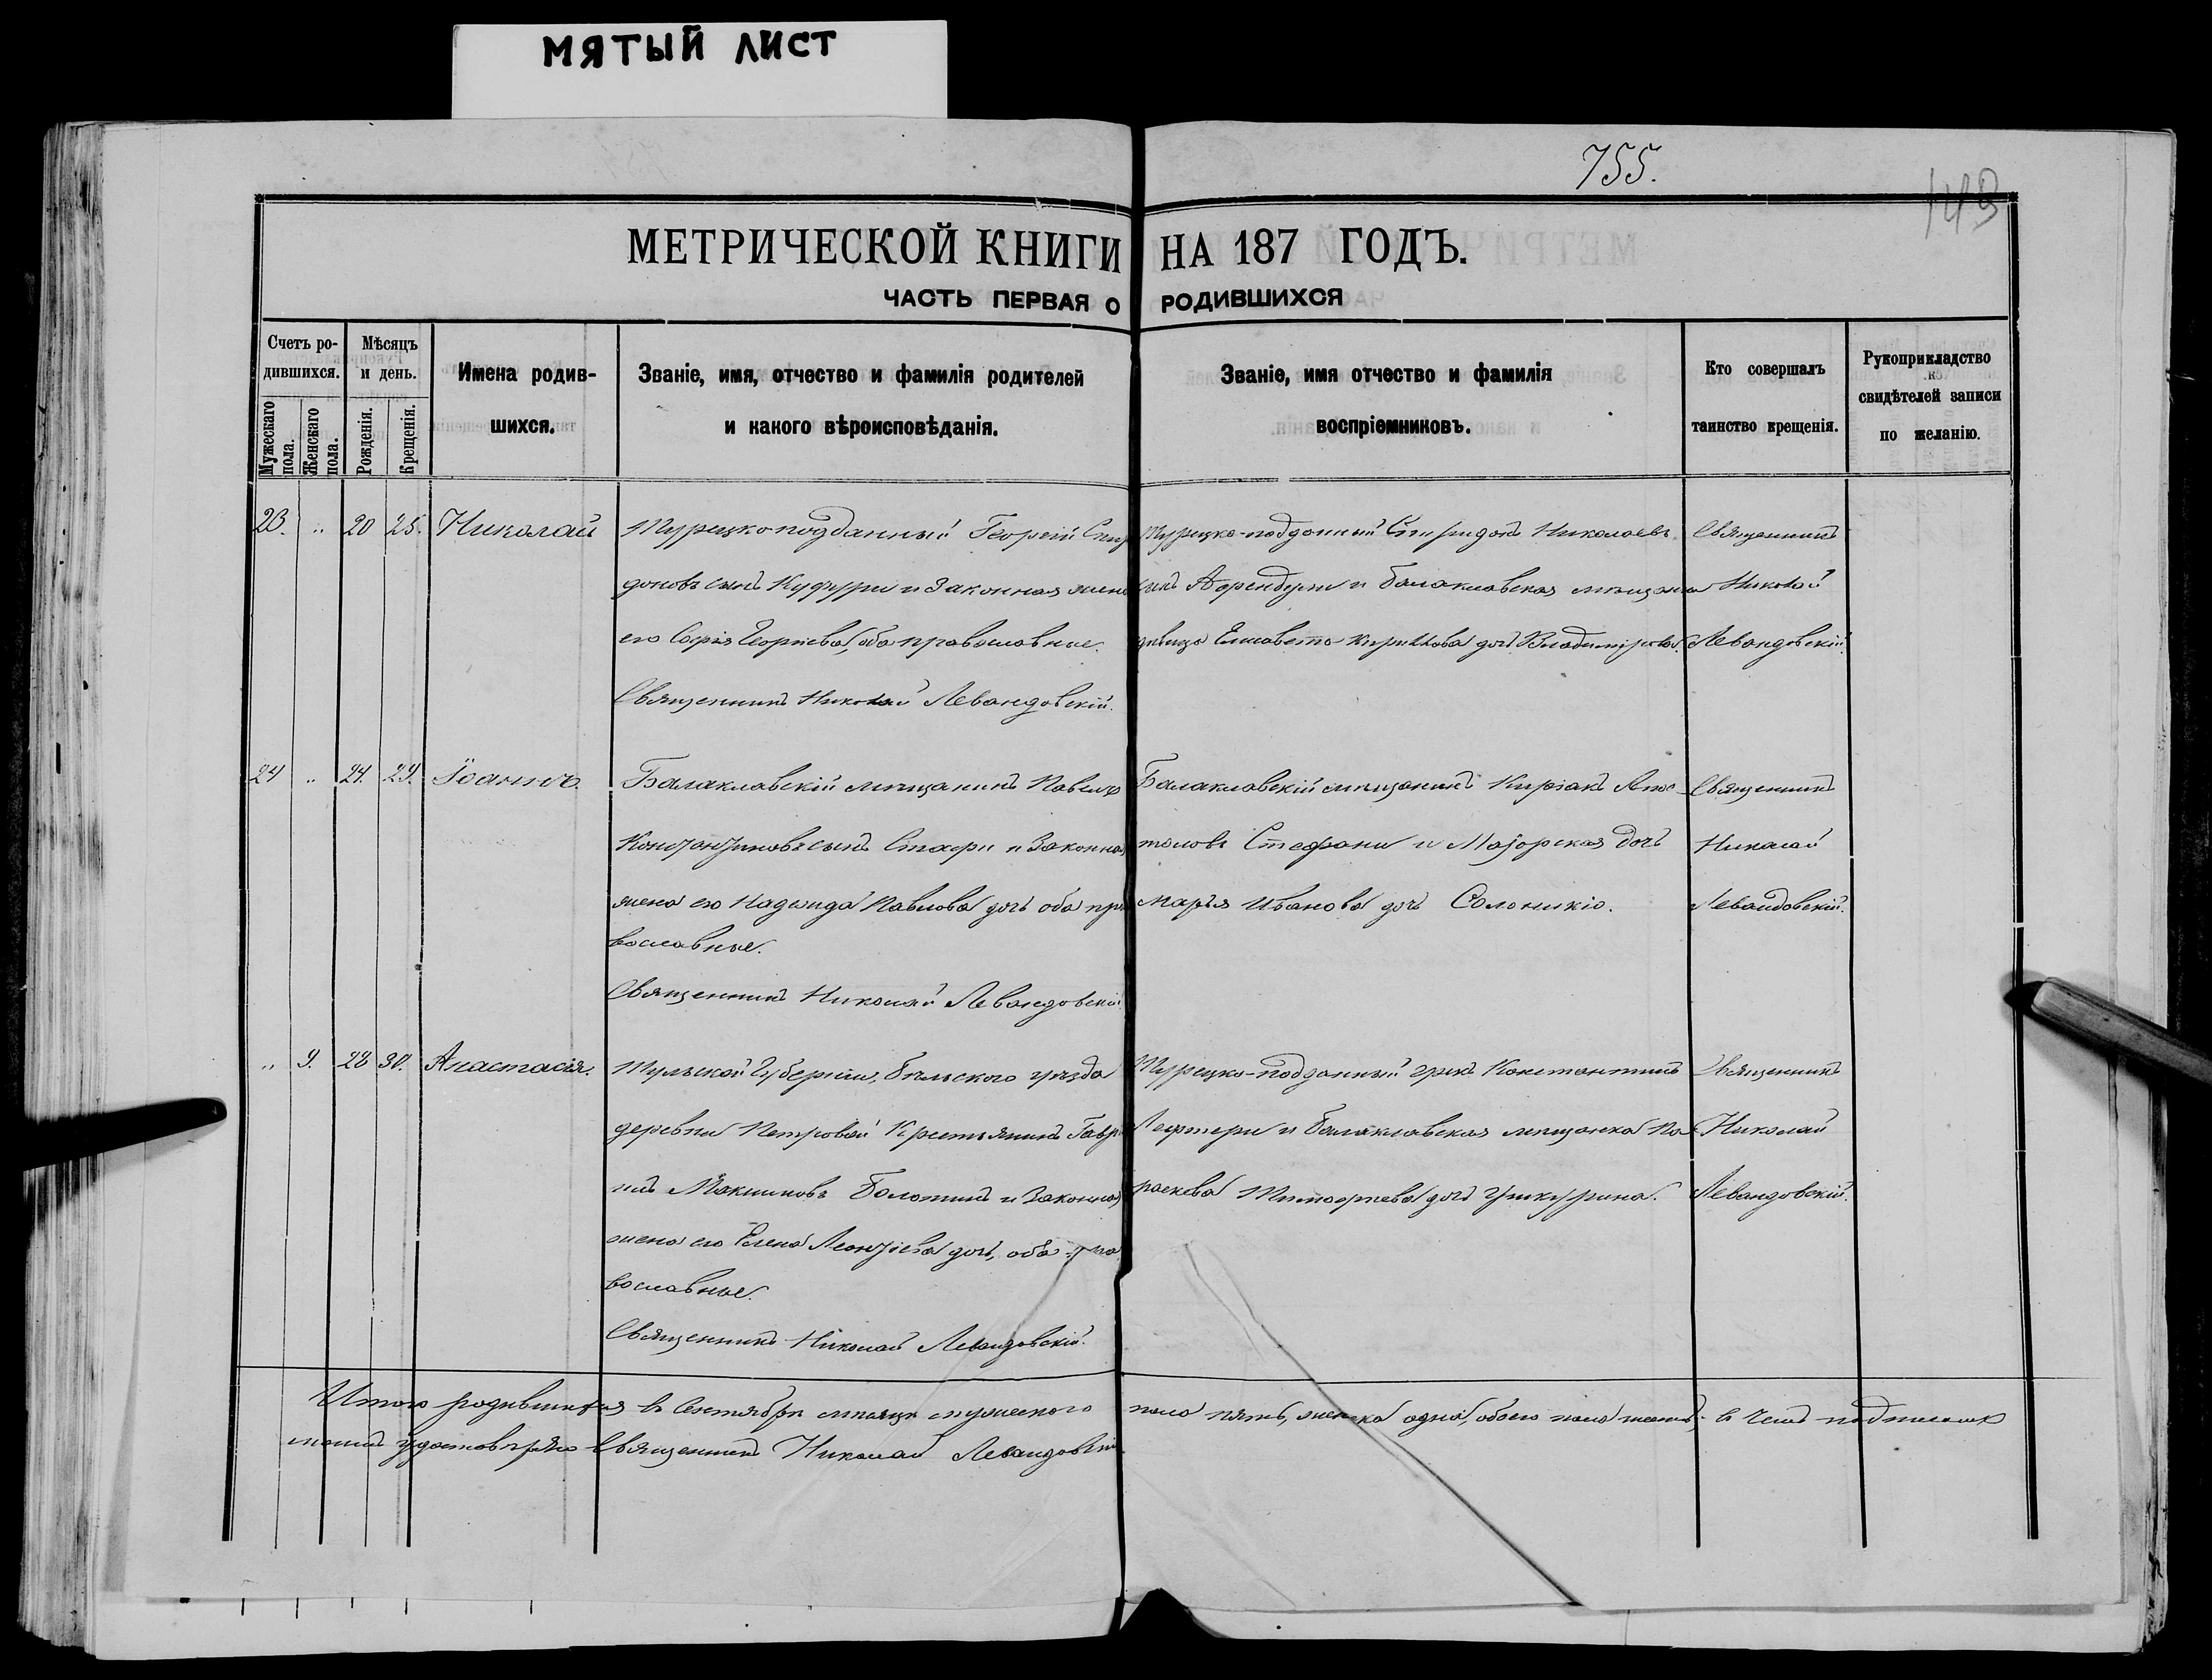 МЯТЫЙ ЛИСТ
755.
149
МЕТРИЧЕСКОЙ КНИГИ НА 187 ГОДЪ.
ЧАСТЬ ПЕРВАЯ О РОДИВШИХСЯ
Счетъ ро-
дившихся.
Мужескаго
пола.
Женскаго
пола.
Мѣсяцъ
и день.
Рожденія.
Крещенія.
Имена родив-
шихся.
Званіе, имя, отчество и фамилія родителей
и какого вѣроисповѣданія.
Званіе, имя отчество и фамилія
воспріемниковъ.
Кто совершалъ
таинство крещенія.
Рукоприкладство
свидѣтелей записи
по желанію.
23. „ 20 25. Николай
Турецко подданный Георгій Спир
доновъ сынъ и Законная жена
его Софія Георгіева, оба православные.
Священникъ Николай Левандовскій.
Турецко-подданный Спиридонъ Николаевъ
сынъ и балаклавская мѣщанка
дѣвица Елисавета дочь
Священникъ
Николай
Левандовскій.
24 „ 24. 29. Іоаннъ.
Балаклавскій мѣщанинъ Павелъ
Константиновъ сынъ и Законная
жена его Надежда Павлова дочь оба пра
вославные.
Священникъ Николай Левандовскій
Балаклавскій мѣщанинъ Киріакъ Апос-
толовъ Стефани и Маіорская дочь
Марья Иванова дочь
Священникъ
Николай
Левандовскій.
„ 9. 28 30. Анастасія.
Тульской Губерніи, Бѣльского уѣзда
деревни Петровой Крестьянинъ Гаврі
илъ Болотинъ и Законная
жена его Елена Леонтіева дочь, оба пра
вославные.
Священникъ Николай Левандовскій.
Турецко-подданный грекъ Константинъ
Лефтери и балаклавская мѣщанка Па
раскева Тимофеева дочь
Священникъ
Николай
Левандовскій.
Итого родившихся въ Сентябрѣ мѣсяцѣ мужеского пола пять, женска одна, обоего пола шесть; въ чемъ
удостовѣряю Священникъ Николай Левандовскій